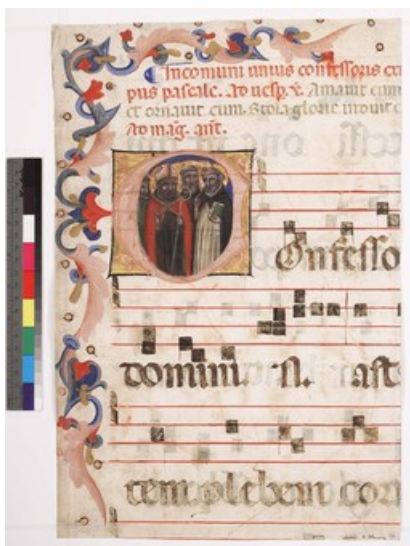 In comuni unius confessoris
pus pascale. ad uesp. Amauit eum
et ornauit eum. Stola glorie
ad mag. ant.
Onfesso
domini. N. ast
tem plebem